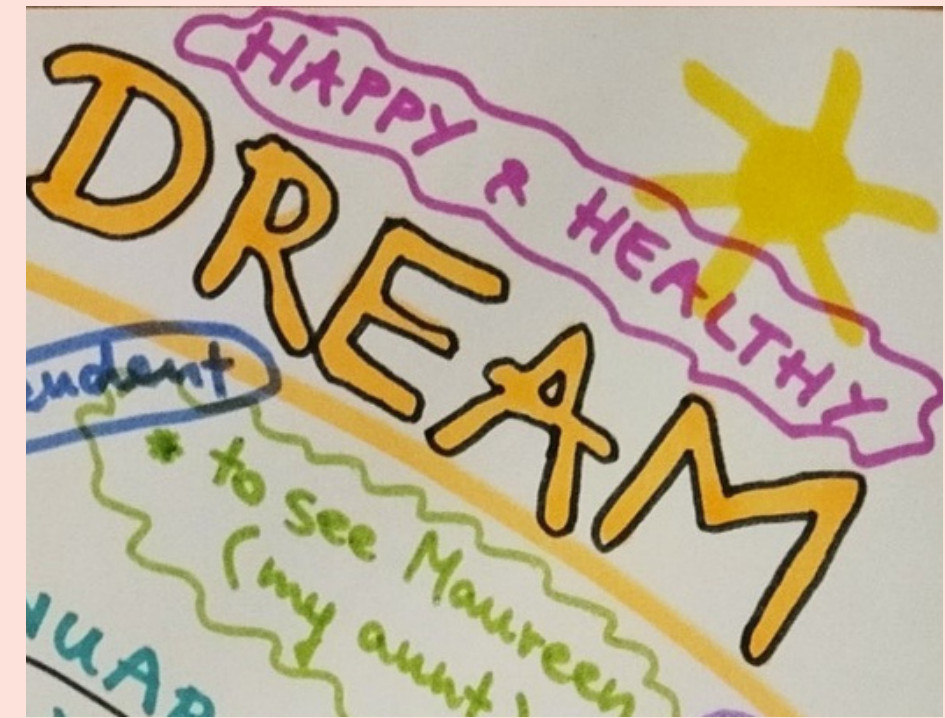 HAPPY & HEALTHY
DREAM
endent
* to see Maureen
(my aunt)
NUAR